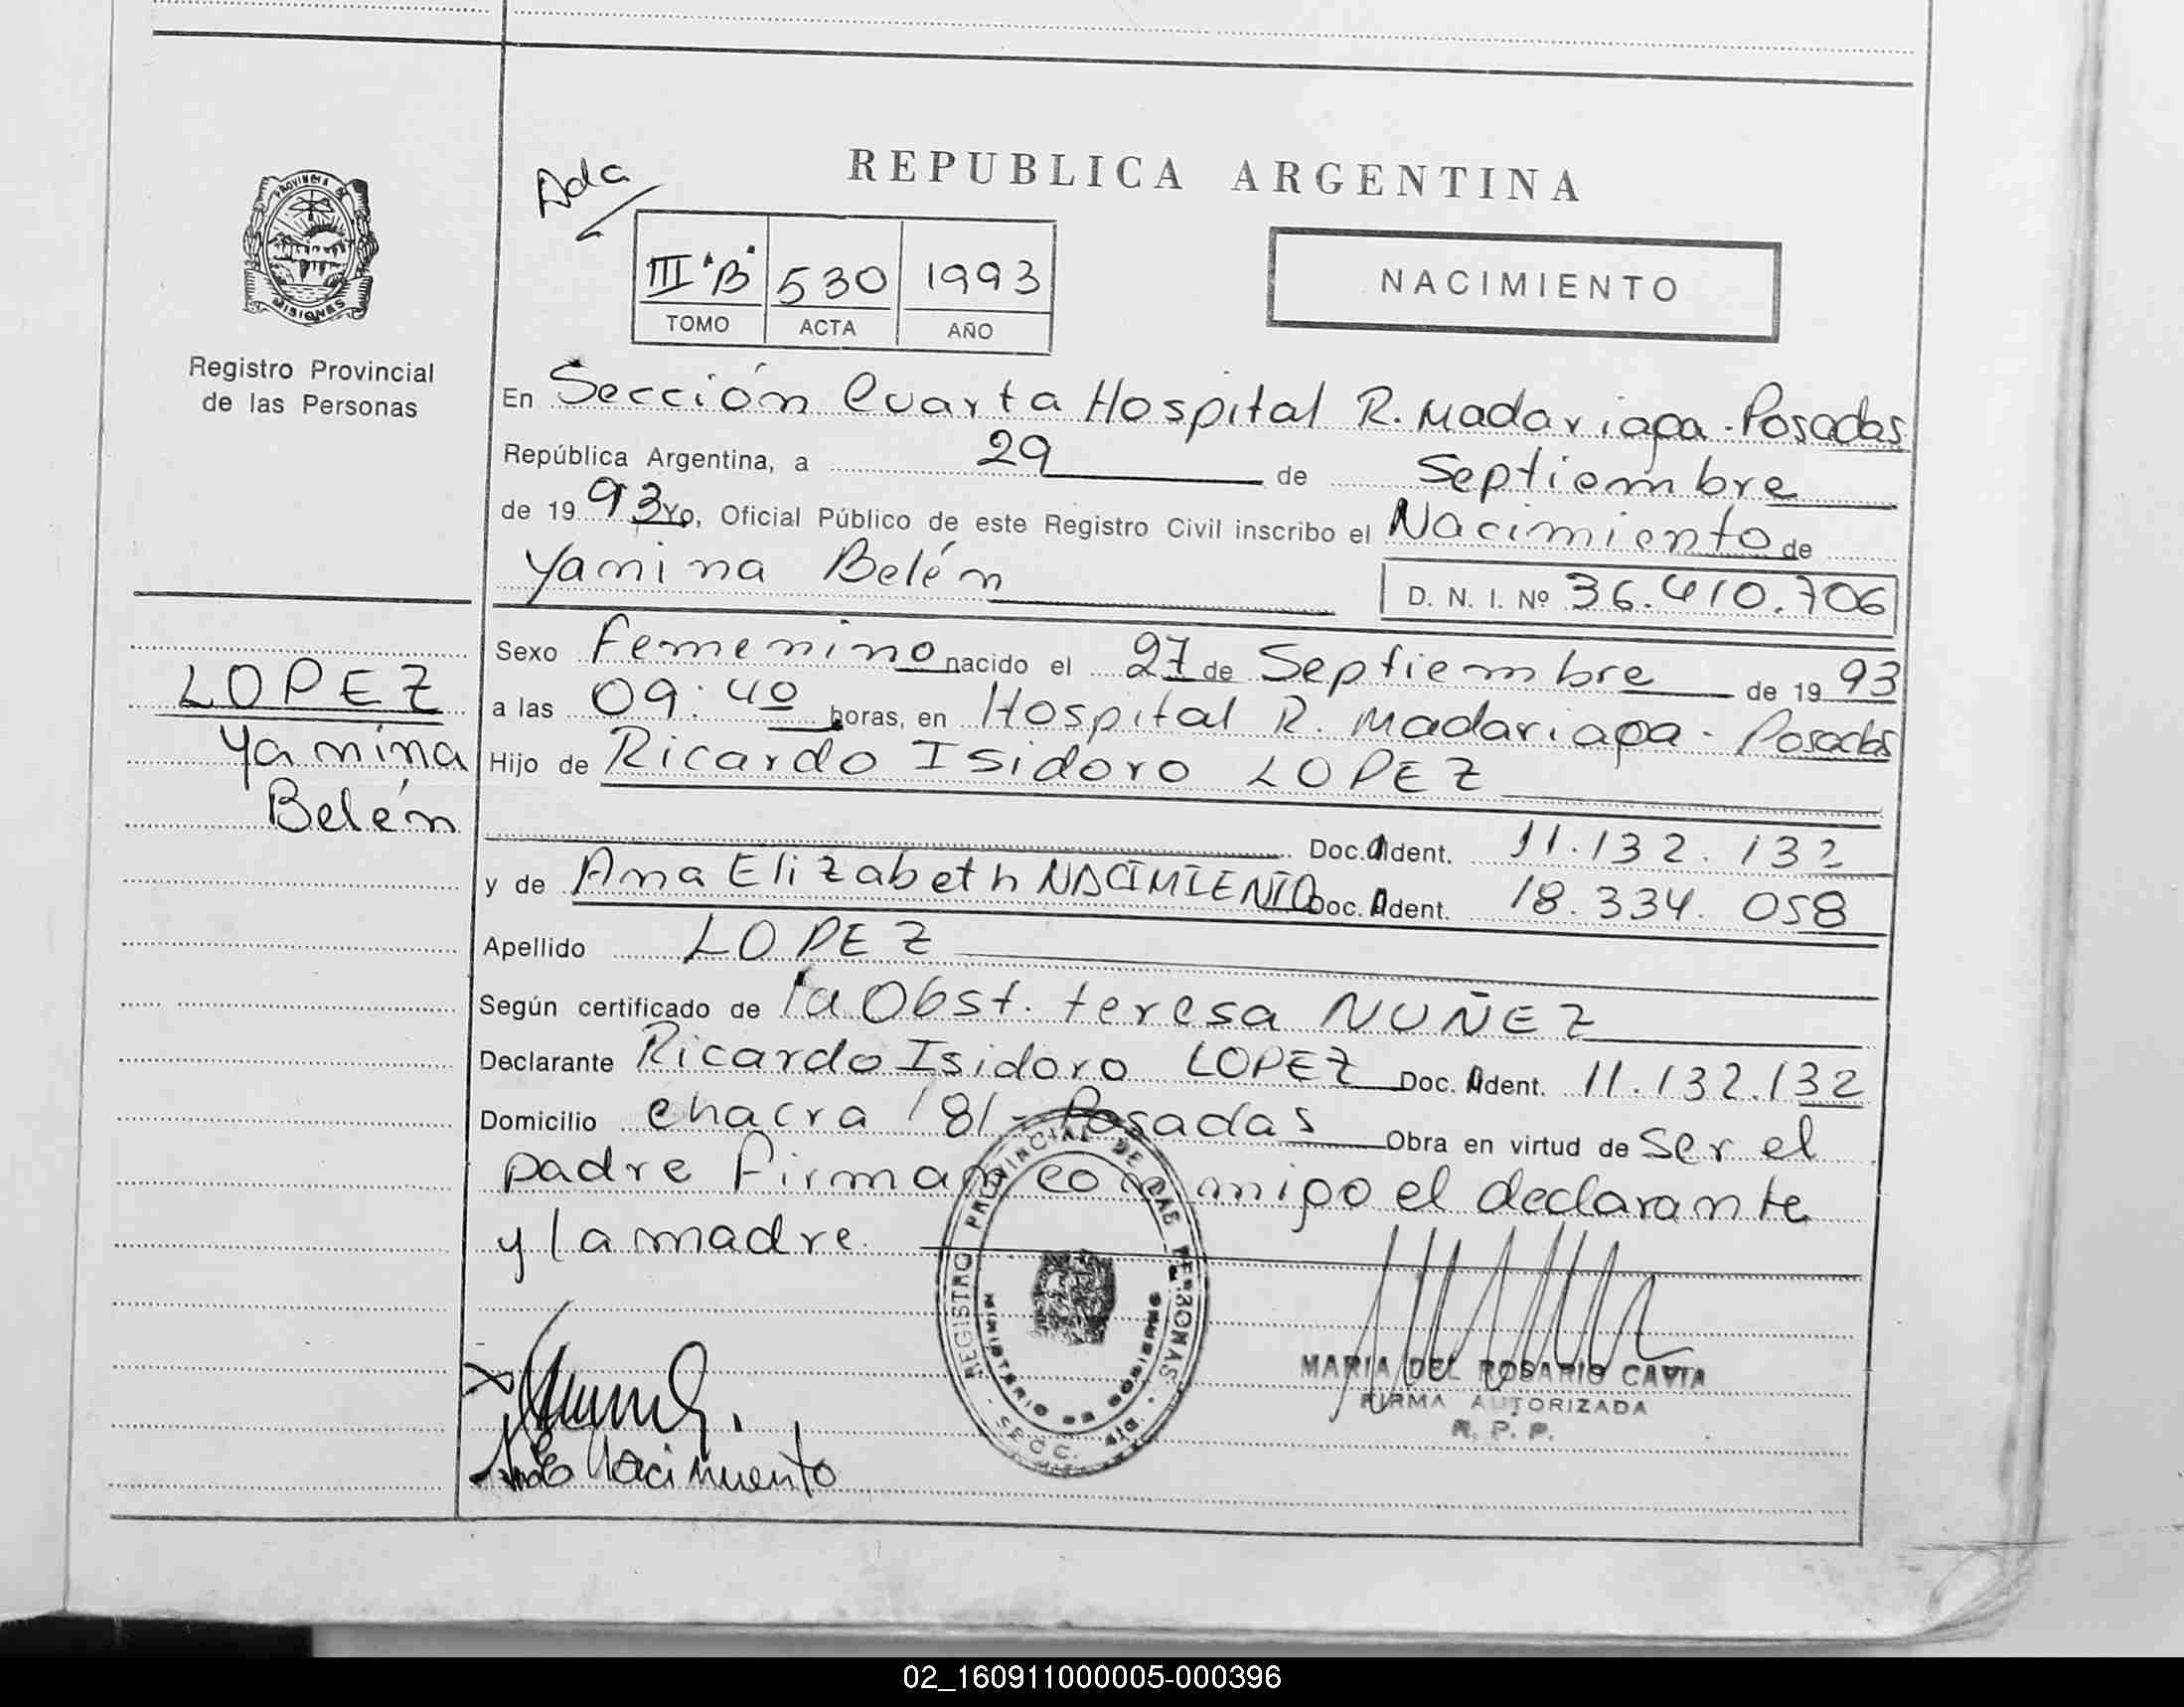 Ada
REPUBLICA ARGENTINA
III "B" 530 1993
TOMO ACTA AÑO
NACIMIENTO
PROVINCIA DE
MISIONES
Registro Provincial
de las Personas
En Sección Cuarta Hospital R. Madariaga - Posadas
República Argentina, a 29 de Septiembre
de 1993 Yo, Oficial Público de este Registro Civil inscribo el Nacimiento de
Yamina Belén D. N. I. Nº 36.410.706
Sexo Femenino nacido el 27 de Septiembre de 1993
a las 09:40 horas, en Hospital R. Madariaga - Posadas
Hijo de Ricardo Isidoro LOPEZ
Doc. Ident. 11.132.132
y de Ana Elizabeth NACIMIENTO Doc. Ident. 18.334.058
Apellido LOPEZ
Según certificado de la Obst. teresa NUÑEZ
Declarante Ricardo Isidoro LOPEZ Doc. Ident. 11.132.132
Domicilio chacra 181 - Posadas Obra en virtud de ser el
padre Firman conmigo el declarante
y la madre
LOPEZ
Yamina
Belén
REGISTRO PROVINCIAL DE LAS PERSONAS
MINISTERIO DE GOBIERNO
SECC. 4ta
MARIA DEL ROSARIO CAVIA
FIRMA AUTORIZADA
R. P. P.
Nacimiento
02_160911000005-000396